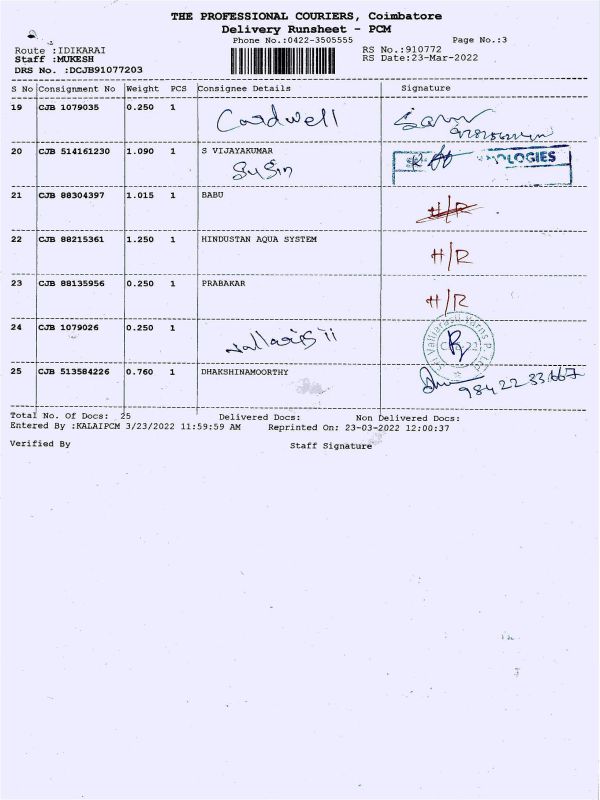 THE PROFESSIONAL COURIERS, Coimbatore
Delivery Runsheet - PCM
Phone No.:0422-3505555
Page No.:3
Route :IDIKARAI
RS No.:910772
Staff :MUKESH
RS Date:23-Mar-2022
DRS No. :DCJB91077203
S No Consignment No Weight PCS Consignee Details Signature
19 CJB 1079035 0.250 1 Cardwell
20 CJB 514161230 1.090 1 S VIJAYAKUMAR
Susin
21 CJB 88304397 1.015 1 BABU H/R
22 CJB 88215361 1.250 1 HINDUSTAN AQUA SYSTEM H/R
23 CJB 88135956 0.250 1 PRABAKAR H/R
24 CJB 1079026 0.250 1
25 CJB 513584226 0.760 1 DHAKSHINAMOORTHY
Total No. Of Docs: 25 Delivered Docs: Non Delivered Docs:
Entered By :KALAIPCM 3/23/2022 11:59:59 AM Reprinted On: 23-03-2022 12:00:37
Verified By Staff Signature